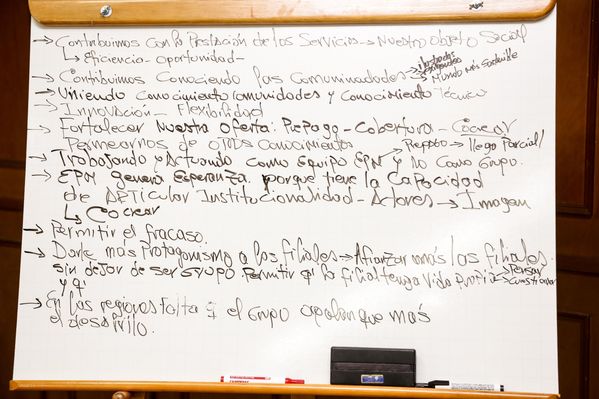 → Contribuimos con la Prestación de los Servicios → Nuestro Objeto Social
↳ Eficiencia - oportunidad -
→ Contribuimos Conociendo las Comunidades →
→ Mundo más Sostenible
→ Uniendo Conocimiento comunidades y Conocimiento Técnico
→ Innovación - Flexibilidad
→ Fortalecer Nuestra Oferta: Prepago - Cobertura - Cocrear
Permearnos de Otros Conocimientos → llega Parcial/
→ Trabajando y Actuando como Equipo EPM y No Como Grupo.
→ EPM genera Esperanza porque tiene la Capacidad
de ARTicular Institucionalidad - Actores → Imagen
↳ Cocrear
→ Permitir el fracaso.
→ Darle más Protagonismo a las filiales → Afianzar más las filiales.
sin dejar de ser GRUPO. Permitir q' la filial tenga Vida Propia → Pensar
y q' Cuestionar
→ En las regiones falta q' el Grupo apalanque más
el desarrollo.